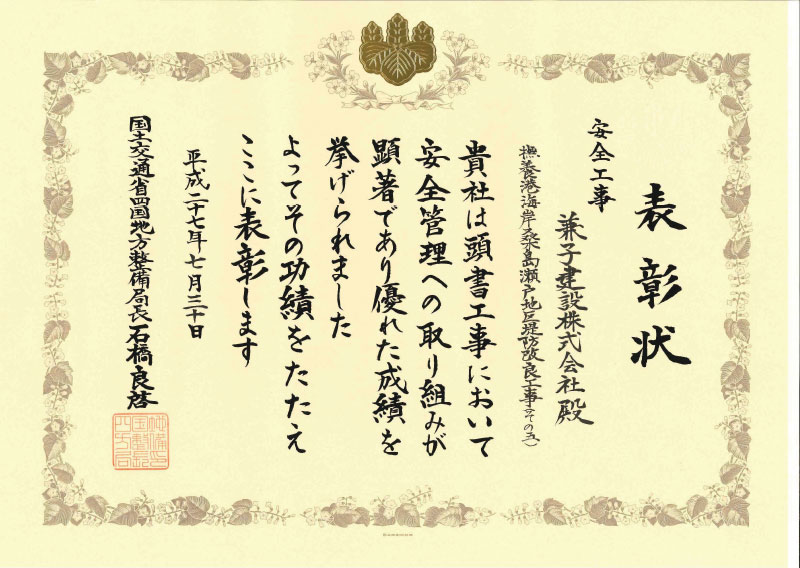 表彰状
安全工事
兼子建設株式会社殿
撫養港海岸桑島瀬戸地区堤防改良工事(その五)
貴社は頭書工事において
安全管理への取り組みが
顕著であり優れた成績を
挙げられました
よってその功績をたたえ
ここに表彰します
平成二十七年七月三十日
国土交通省四国地方整備局長石橋良啓